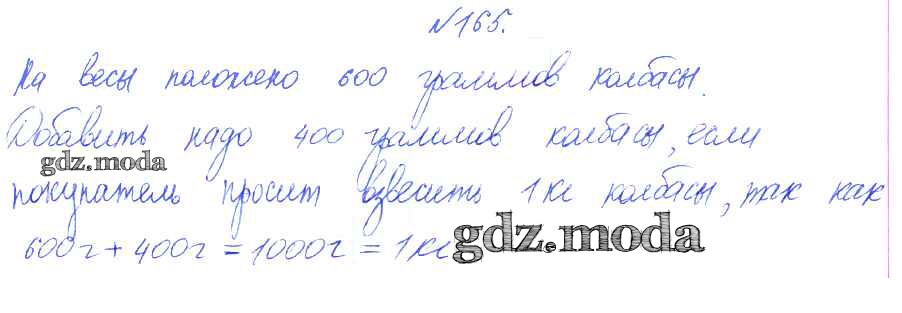 №165.
На весы положено 600 граммов колбасы.
Добавить надо 400 граммов колбасы, если
gdz.moda
покупатель просит взвесить 1 кг колбасы, так как
600г + 400г = 1000г = 1 кг
gdz.moda